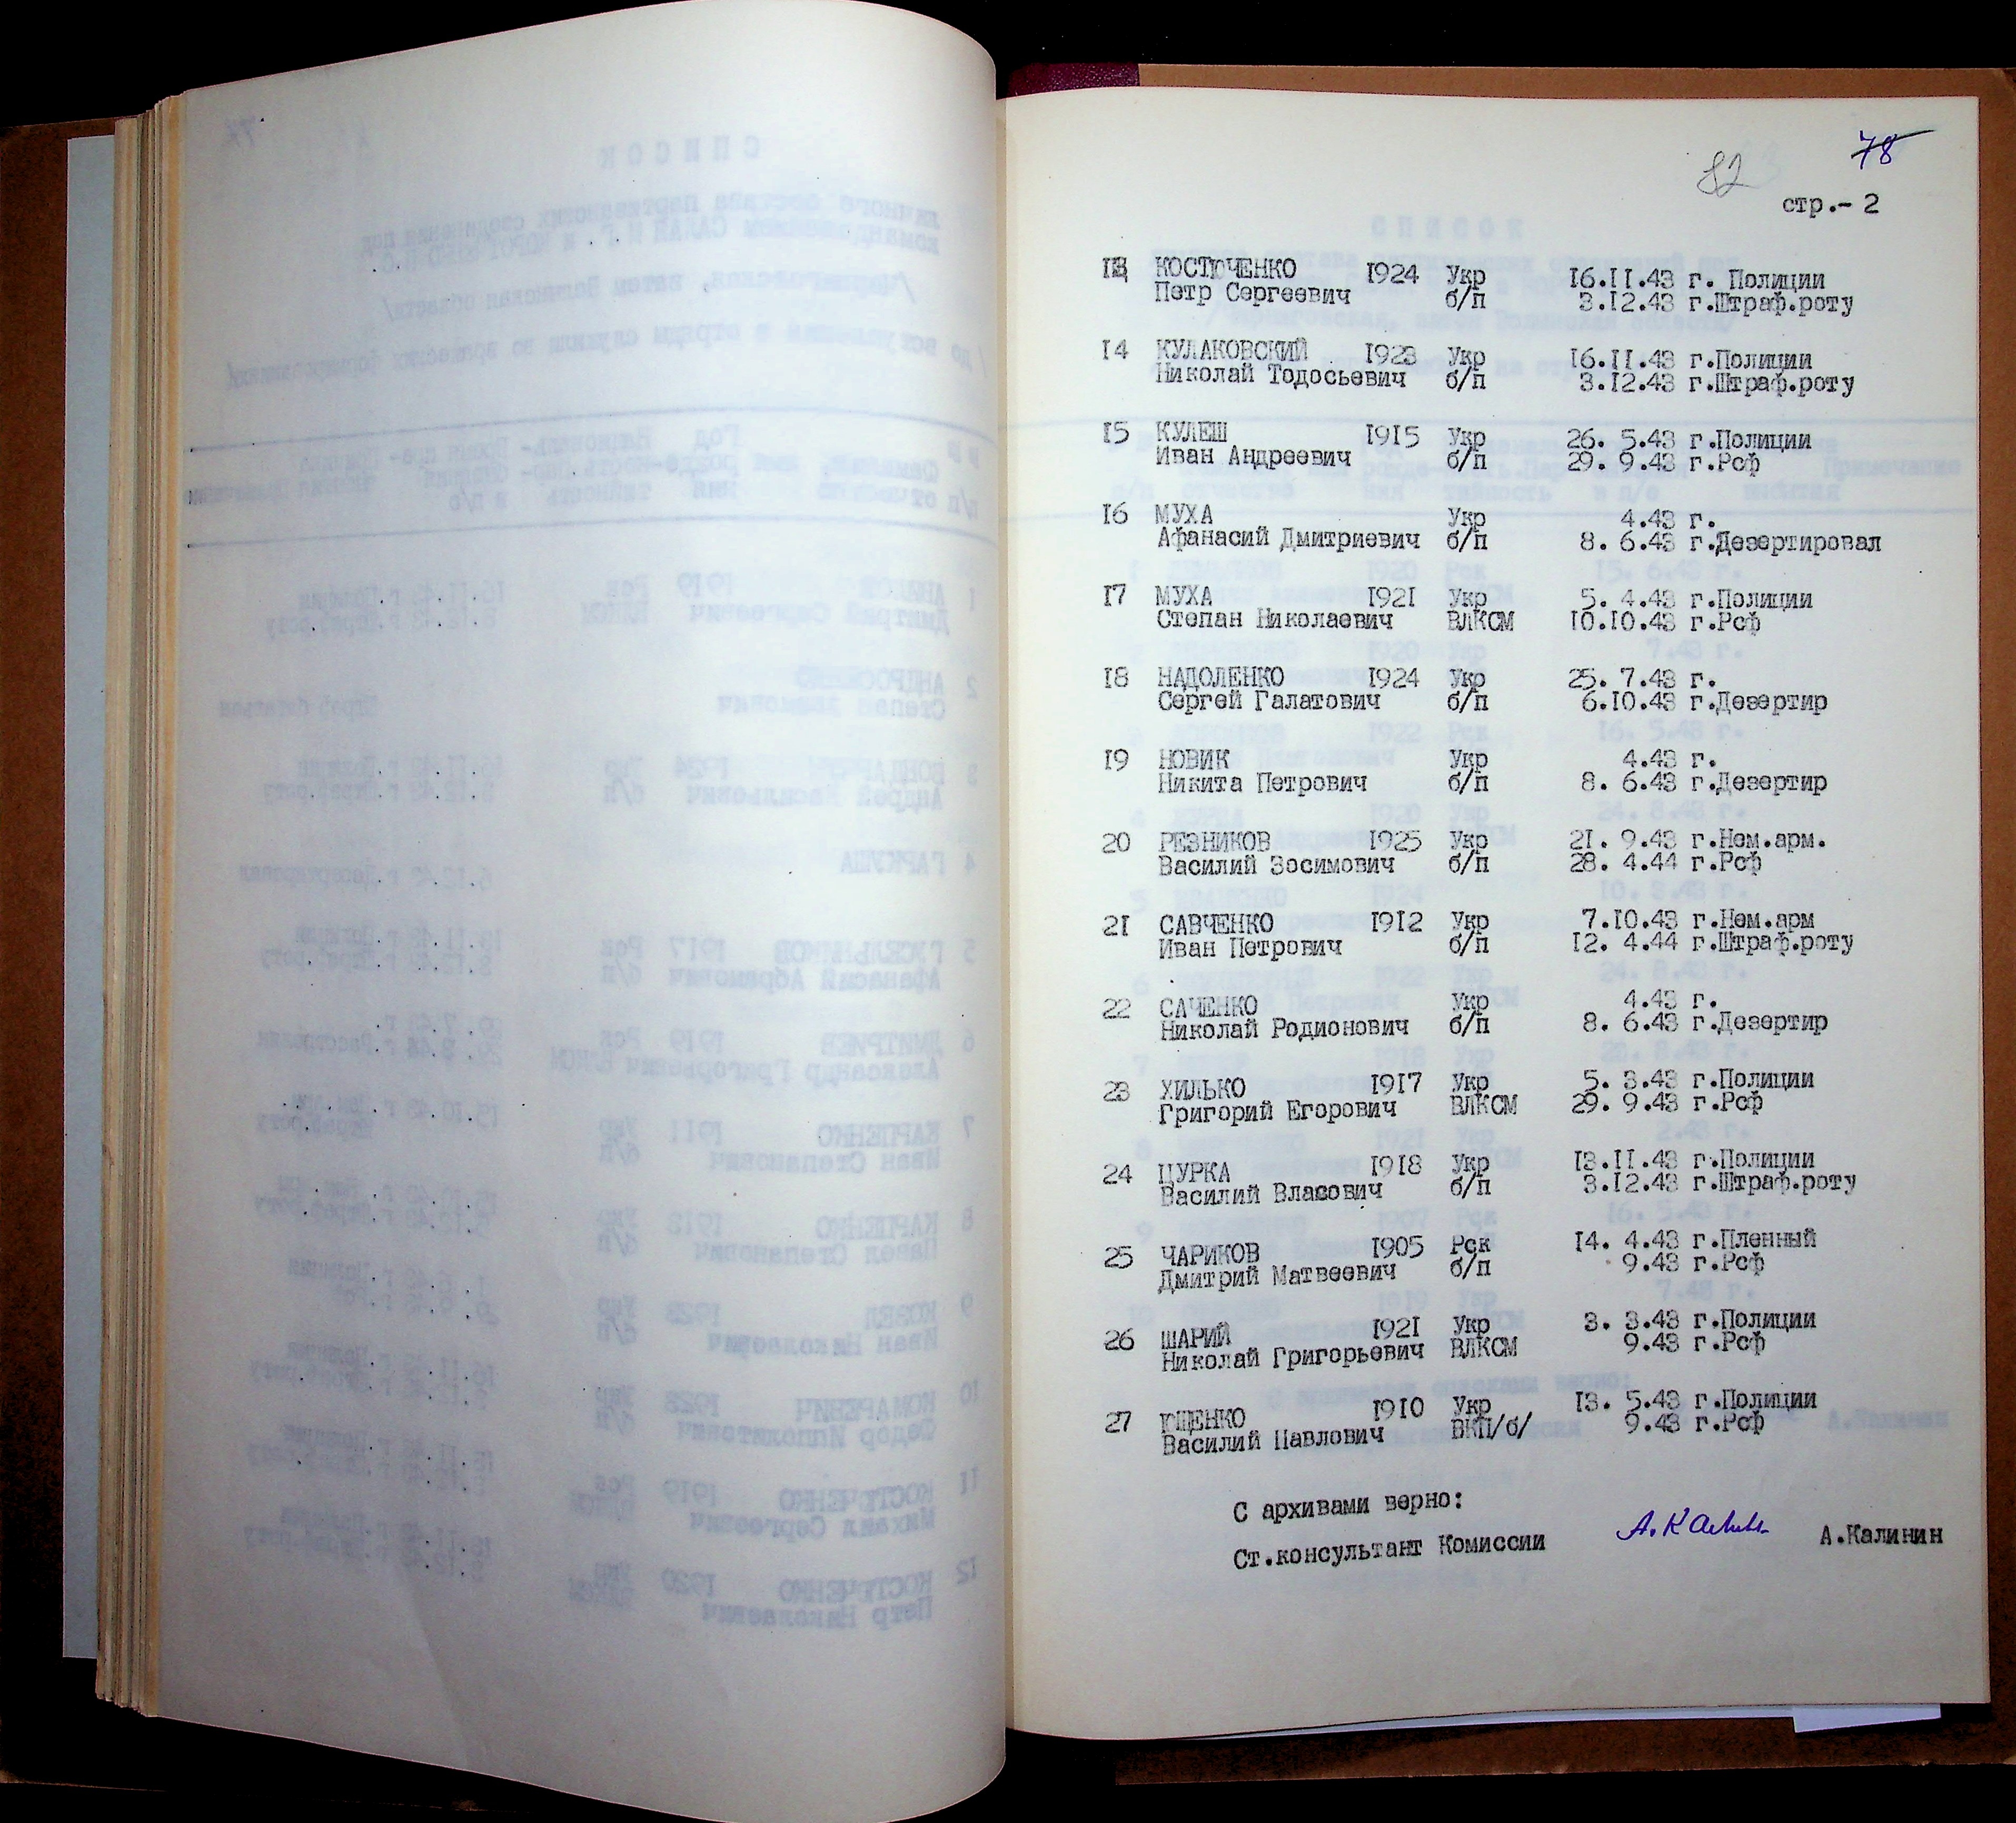 78
82
стр.- 2
13 КОСТЮЧЕНКО 1924 Укр 16.11.43 г. Полиции
Петр Сергеевич б/п 3.12.43 г.Штраф.роту
14 КУЛАКОВСКИЙ 1923 Укр 16.11.43 г.Полиции
Николай Тодосьевич б/п 3.12.43 г.Штраф.роту
15 КУЛЕШ 1915 Укр 26. 5.43 г.Полиции
Иван Андреевич б/п 29. 9.43 г.Рсф
16 МУХА Укр 4.43 г.
Афанасий Дмитриевич б/п 8. 6.43 г.Дезертировал
17 МУХА 1921 Укр 5. 4.43 г.Полиции
Степан Николаевич ВЛКСМ 10.10.43 г.Рсф
18 НАДОЛЕНКО 1924 Укр 25. 7.43 г.
Сергей Галатович б/п 6.10.43 г.Дезертир
19 НОВИК Укр 4.43 г.
Никита Петрович б/п 8. 6.43 г.Дезертир
20 РЕЗНИКОВ 1925 Укр 21. 9.43 г.Нем.арм.
Василий Зосимович б/п 28. 4.44 г.Рсф
21 САВЧЕНКО 1912 Укр 7.10.43 г.Нем.арм
Иван Петрович б/п 12. 4.44 г.Штраф.роту
22 САЧЕНКО Укр 4.43 г.
Николай Родионович б/п 8. 6.43 г.Дезертир
23 ХИЛЬКО 1917 Укр 5. 3.43 г.Полиции
Григорий Егорович ВЛКСМ 29. 9.43 г.Рсф
24 ЦУРКА 1918 Укр 13.11.43 г.Полиции
Василий Власович б/п 3.12.43 г.Штраф.роту
25 ЧАРИКОВ 1905 Рск 14. 4.43 г.Пленный
Дмитрий Матвеевич б/п 9.43 г.Рсф
26 ШАРИЙ 1921 Укр 3. 3.43 г.Полиции
Николай Григорьевич ВЛКСМ 9.43 г.Рсф
27 ЮЩЕНКО 1910 Укр 13. 5.43 г.Полиции
Василий Павлович ВКП/б/ 9.43 г.Рсф
С архивами верно:
Ст.консультант Комиссии А.Калинин